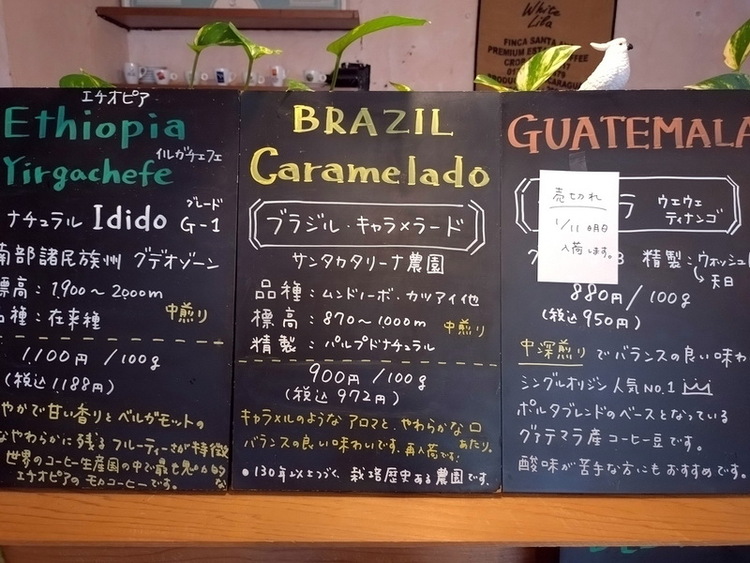 White
Lila
FINCA SANTA
PREMIUM ESTATE COFFEE
エチオピア
Ethiopia
Yirgachefe
イルガチェフェ
ナチュラル Idido グレード G-1
南部諸民族州 グデオゾーン
標高:1,900~2000m
品種:在来種
中煎り
1,100円/100g
(税込1188円)
やかで甘い香りとベルガモットの
なやわらかに残るフルーティーさが特徴
世界のコーヒー生産国の中で最も
エチオピアのモカコーヒーです。
BRAZIL
Caramelado
ブラジル・キャラメラード
サンタカタリーナ農園
品種:ムンドノーボ・カツアイ他
標高:870~1000m
中煎り
精製:パルプドナチュラル
900円/100g
(税込972円)
キャラメルのようなアロマと、やわらかな口
あたり。
バランスの良い味わいです。再入荷です!
●130年以上つづく、栽培歴史ある農園です。
GUATEMALA
ラ ウエウエ
ティナンゴ
売切れ
1/11 明日
入荷します。
精製:ウォッシュ
天日
880円/100g
(税込950円)
中深煎りでバランスの良い味わ
シングルオリジン人気No.1
ポルタブレンドのベースとなっている
グァテマラ産コーヒー豆です。
酸味が苦手な方にもおすすめです。